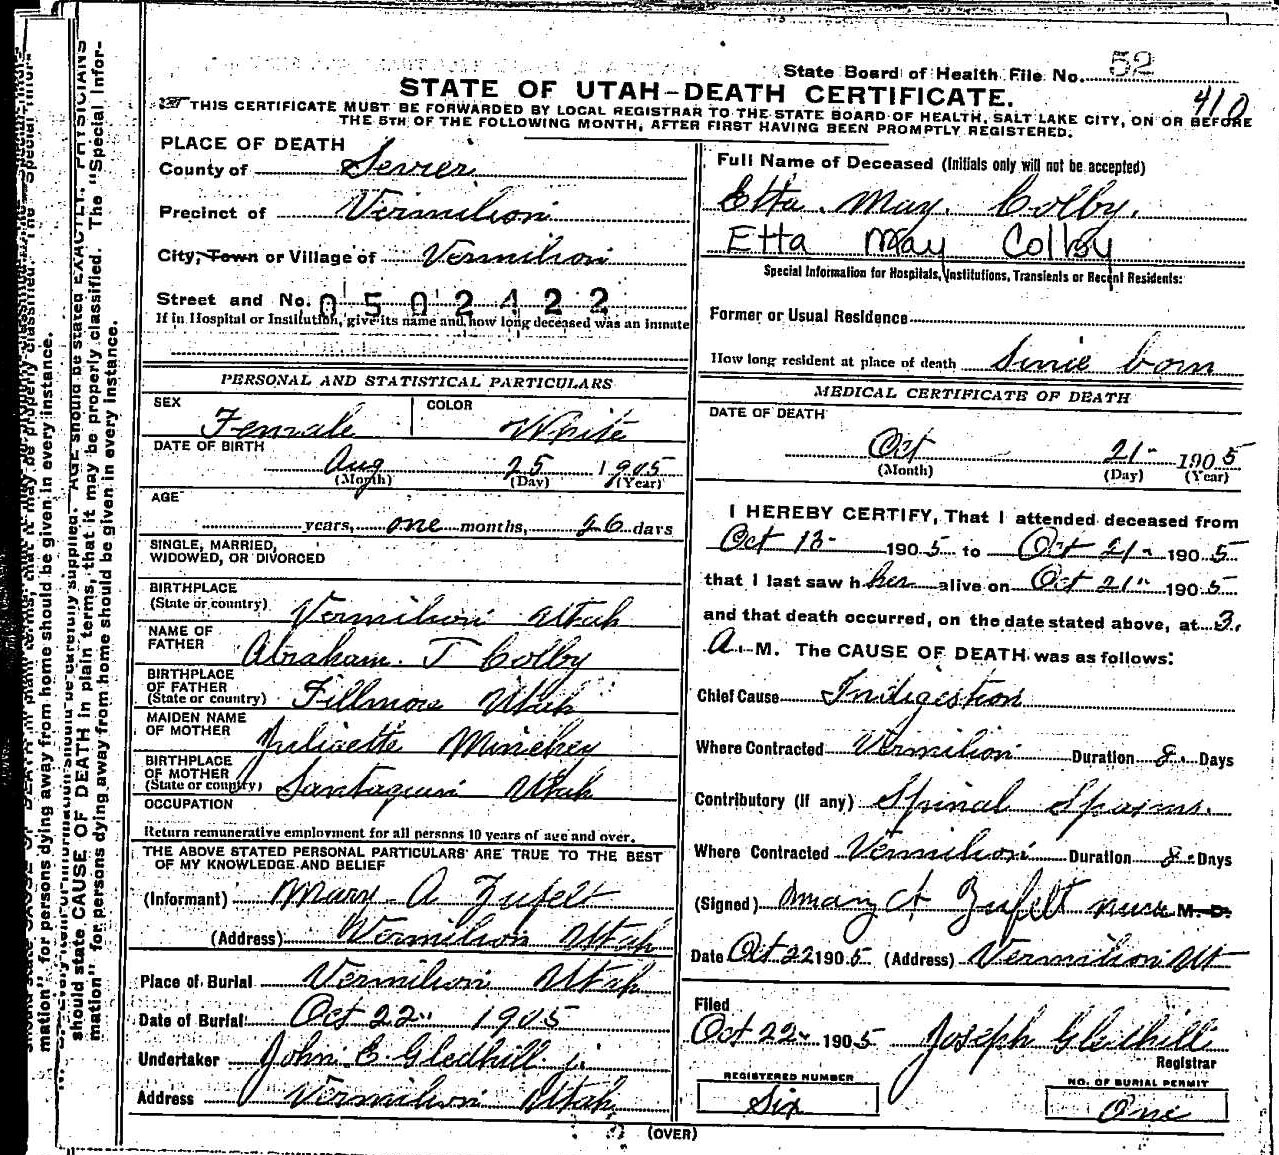 State Board of Health File No. 52
410
STATE OF UTAH-DEATH CERTIFICATE.
THIS CERTIFICATE MUST BE FORWARDED BY LOCAL REGISTRAR TO THE STATE BOARD OF HEALTH, SALT LAKE CITY, ON OR BEFORE
THE 5TH OF THE FOLLOWING MONTH, AFTER FIRST HAVING BEEN PROMPTLY REGISTERED.
PLACE OF DEATH
County of Sevier
Precinct of Vermilion
City, Town or Village of Vermilion
Street and No. 0502422
If in Hospital or Institution, give its name and how long deceased was an inmate
PERSONAL AND STATISTICAL PARTICULARS
SEX Female COLOR White
DATE OF BIRTH
Aug 25 1905
(Month) (Day) (Year)
AGE
years, one months, 26 days
SINGLE, MARRIED,
WIDOWED, OR DIVORCED
BIRTHPLACE
(State or country) Vermilion Utah
NAME OF
FATHER Abraham. T Colby
BIRTHPLACE
OF FATHER
(State or country) Fillmore Utah
MAIDEN NAME
OF MOTHER Juliaette Minchey
BIRTHPLACE
OF MOTHER
(State or country) Santaquin Utah
OCCUPATION
Return remunerative employment for all persons 10 years of age and over.
THE ABOVE STATED PERSONAL PARTICULARS ARE TRUE TO THE BEST
OF MY KNOWLEDGE AND BELIEF
(Informant) Mary A Zufelt
(Address) Vermilion Utah
Place of Burial Vermilion Utah
Date of Burial Oct 22 1905
Undertaker John E Gledhill
Address Vermilion Utah
Full Name of Deceased (Initials only will not be accepted)
Etta. May. Colby.
Etta May Colby
Special Information for Hospitals, Institutions, Transients or Recent Residents:
Former or Usual Residence
How long resident at place of death Sinie born
MEDICAL CERTIFICATE OF DEATH
DATE OF DEATH
Oct 21- 1905
(Month) (Day) (Year)
I HEREBY CERTIFY, That I attended deceased from
Oct 13- 1905 to Oct 21- 1905
that I last saw her alive on Oct 21" 1905
and that death occurred, on the date stated above, at 3.
A. M. The CAUSE OF DEATH was as follows:
Chief Cause Indigestion
Where Contracted Vermilion Duration 8. Days
Contributory (If any) Spinal Spasms.
Where Contracted Vermilion Duration 8. Days
(Signed) Mary A Zufelt nurse M. D.
Date Oct 22 1905 (Address) Vermilion Ut
Filed
Oct 22 1905 Joseph Gledhill
Registrar
REGISTERED NUMBER
Six
NO. OF BURIAL PERMIT
One
(OVER)
should state CAUSE OF DEATH in plain terms, that it may be properly classified. The "Special Infor-
mation" for persons dying away from home should be given in every instance.